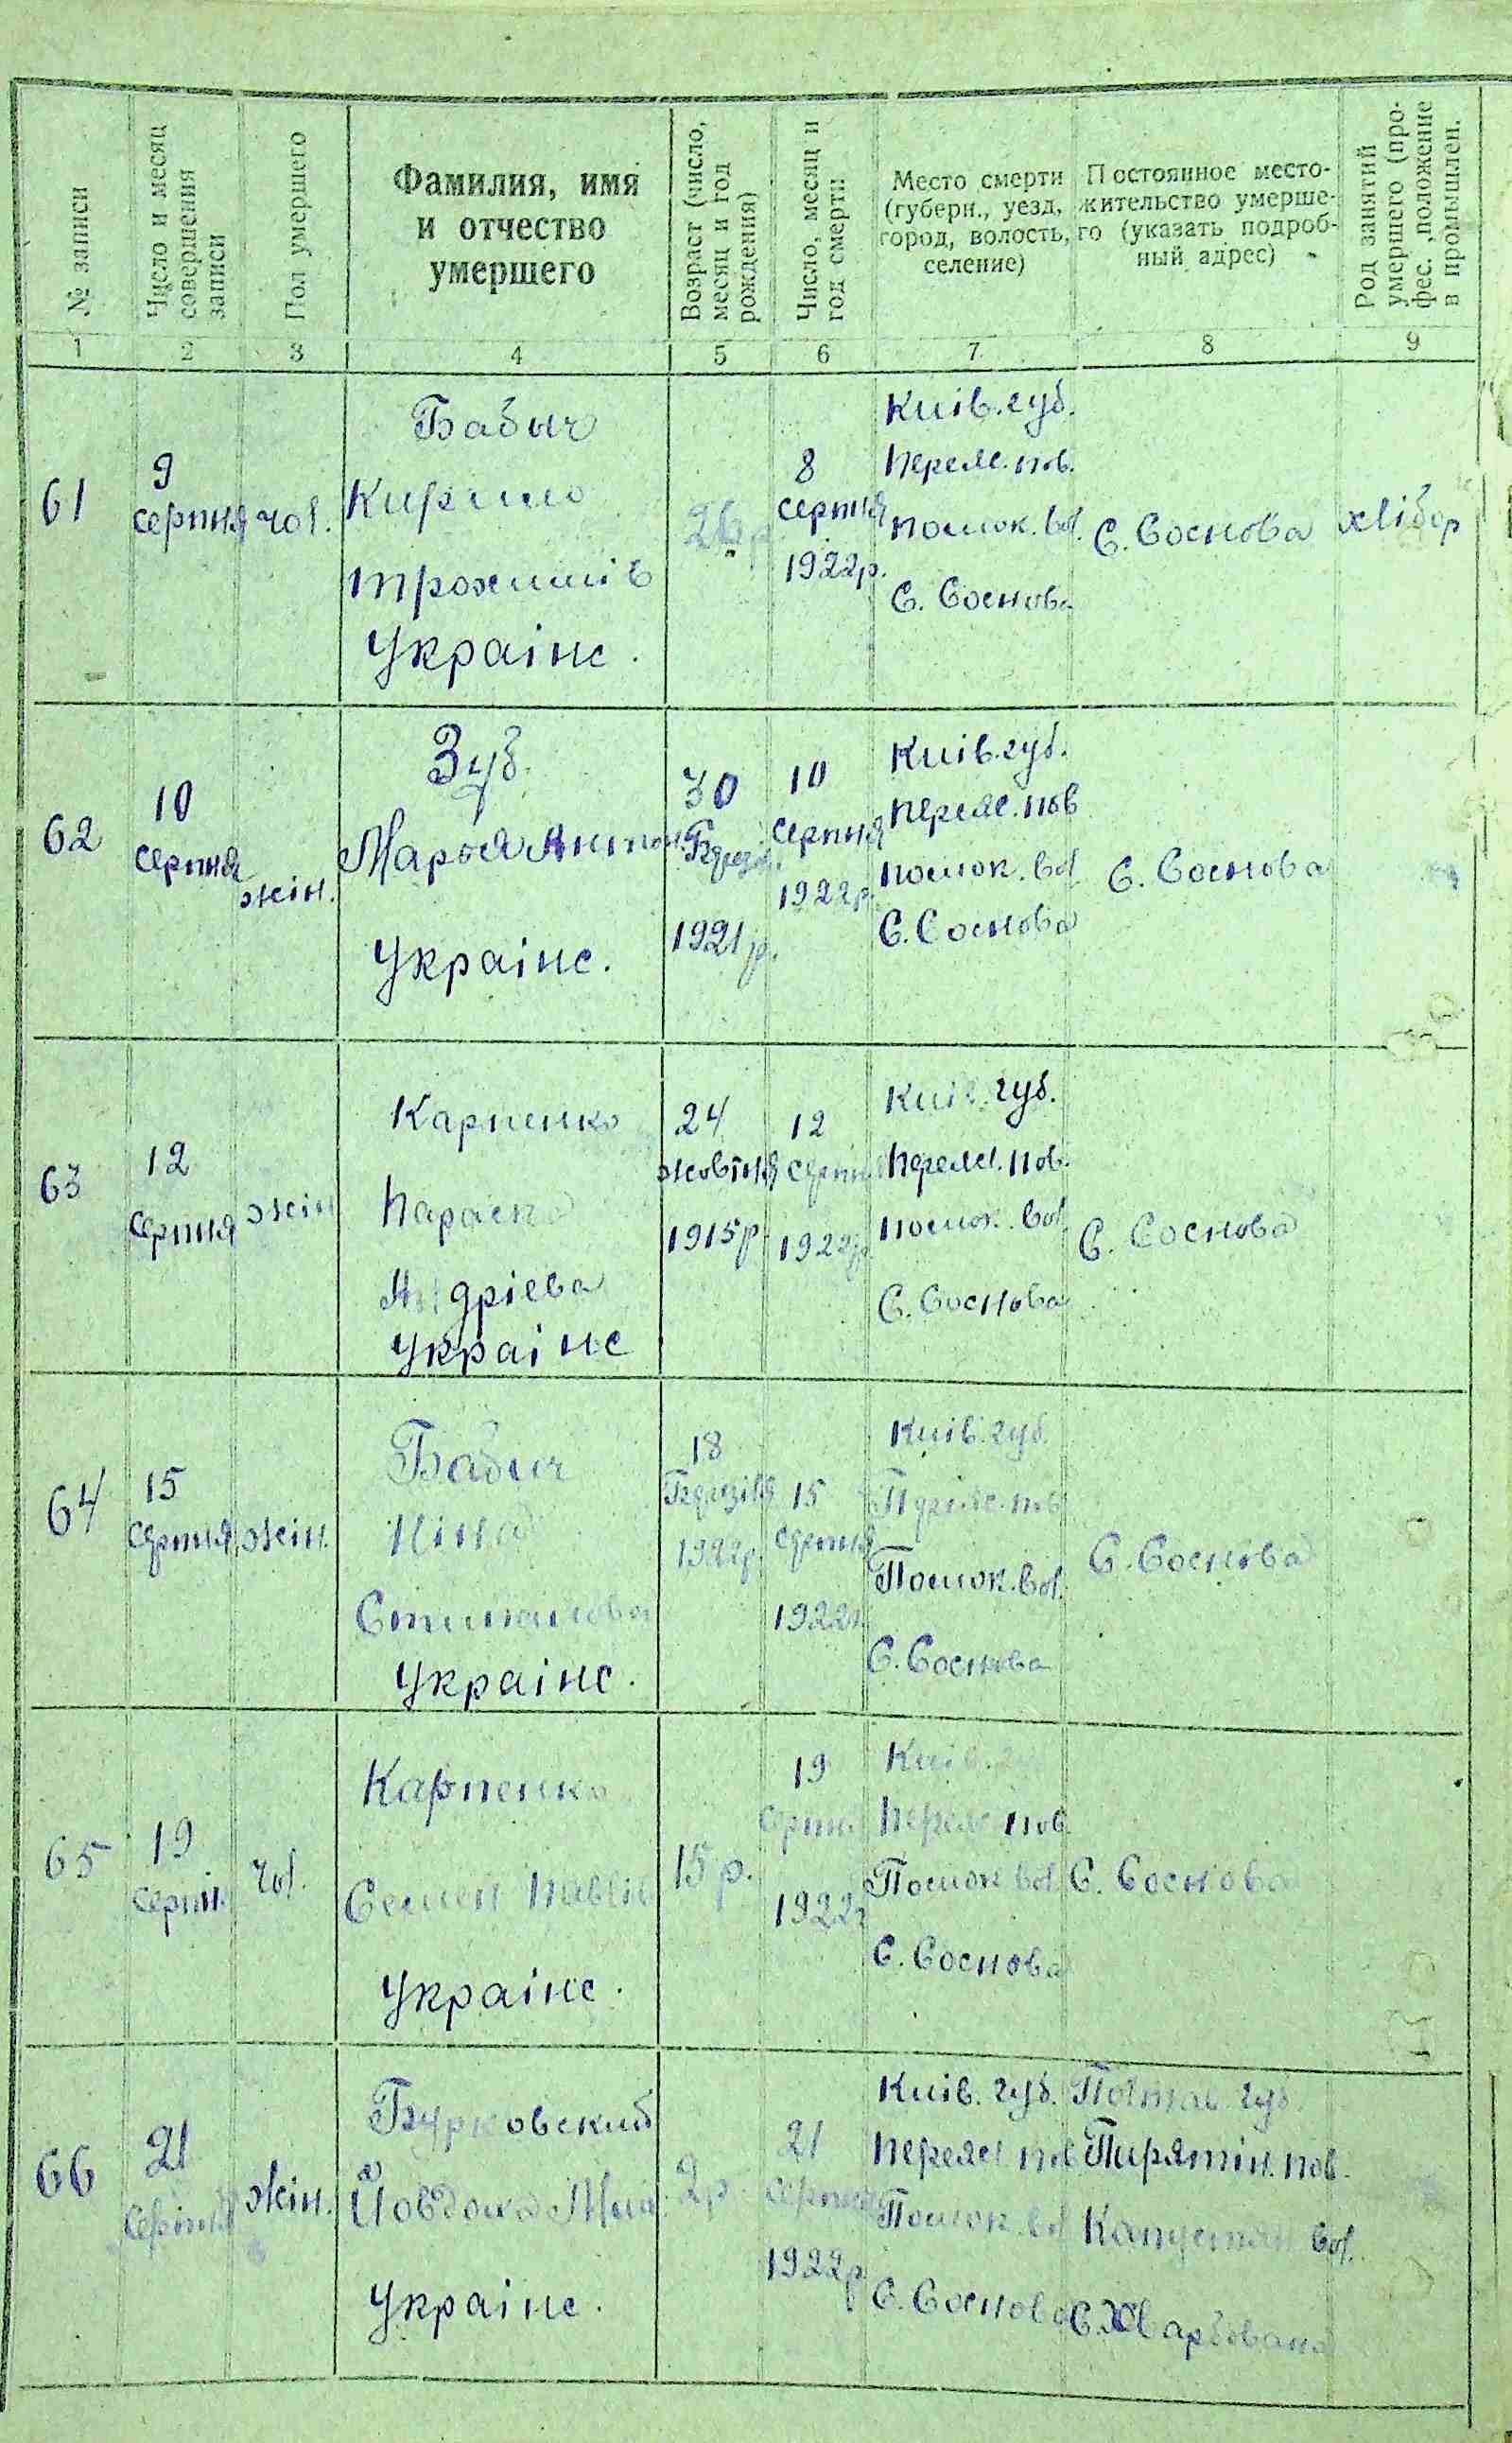 № записи
Число и месяц
совершения
записи
Пол умершего
Фамилия, имя
и отчество
умершего
Возраст (число,
месяц и год
рождения)
Число, месяц и
год смерти
Место смерти
(губерн., уезд,
город, волость,
селение)
Постоянное место-
жительство умерше-
го (указать подроб-
ный адрес)
Род занятий
умершего (про-
фес., положение
в промышлен.
1 2 3 4 5 6 7 8 9
61
9
серпня
чол.
Бабич
Кирило
Трохимів
Украінс.
26 р.
8
серпня
1922р.
Киів. губ.
Переяс. пов.
Помок. вол.
С. Соснова
С. Соснова
хлібор
62
10
серпня
жін.
Зуб
Марья Антон.
Украінс.
30
1921р.
10
серпня
1922р.
Киів. губ.
Переяс. пов
Помок. вол
С. Соснова
С. Соснова
63
12
серпня
жін
Карпенко
Параска
Андрієва
Украінс
24
жовтня
1915р.
12
серпня
1922р.
Киів. губ.
Переяс. пов.
Помок. вол.
С. Соснова
С. Соснова
64
15
серпня
жін.
Бабич
Ніна
Украінс.
18
1922р.
15
серпня
1922р.
Киів. губ.
Переяс. пов
Помок. вол.
С. Соснова
С. Соснова
65
19
серпн.
чол.
Карпенко
Семен Павлів
Украінс.
15 р.
19
серпн.
1922р
Киів. губ
Переяс пов.
Помок вол
С. Соснова
С. Соснова
66
21
серпня
жін.
Бурковский
Йовдоха
Украінс.
2р.
21
серпня
1922р
Киів. губ.
Переясл пов
Помок. вол
С. Соснова
Полтав. губ.
Пирятін. пов.
Капустян вол.
С. Харбовано